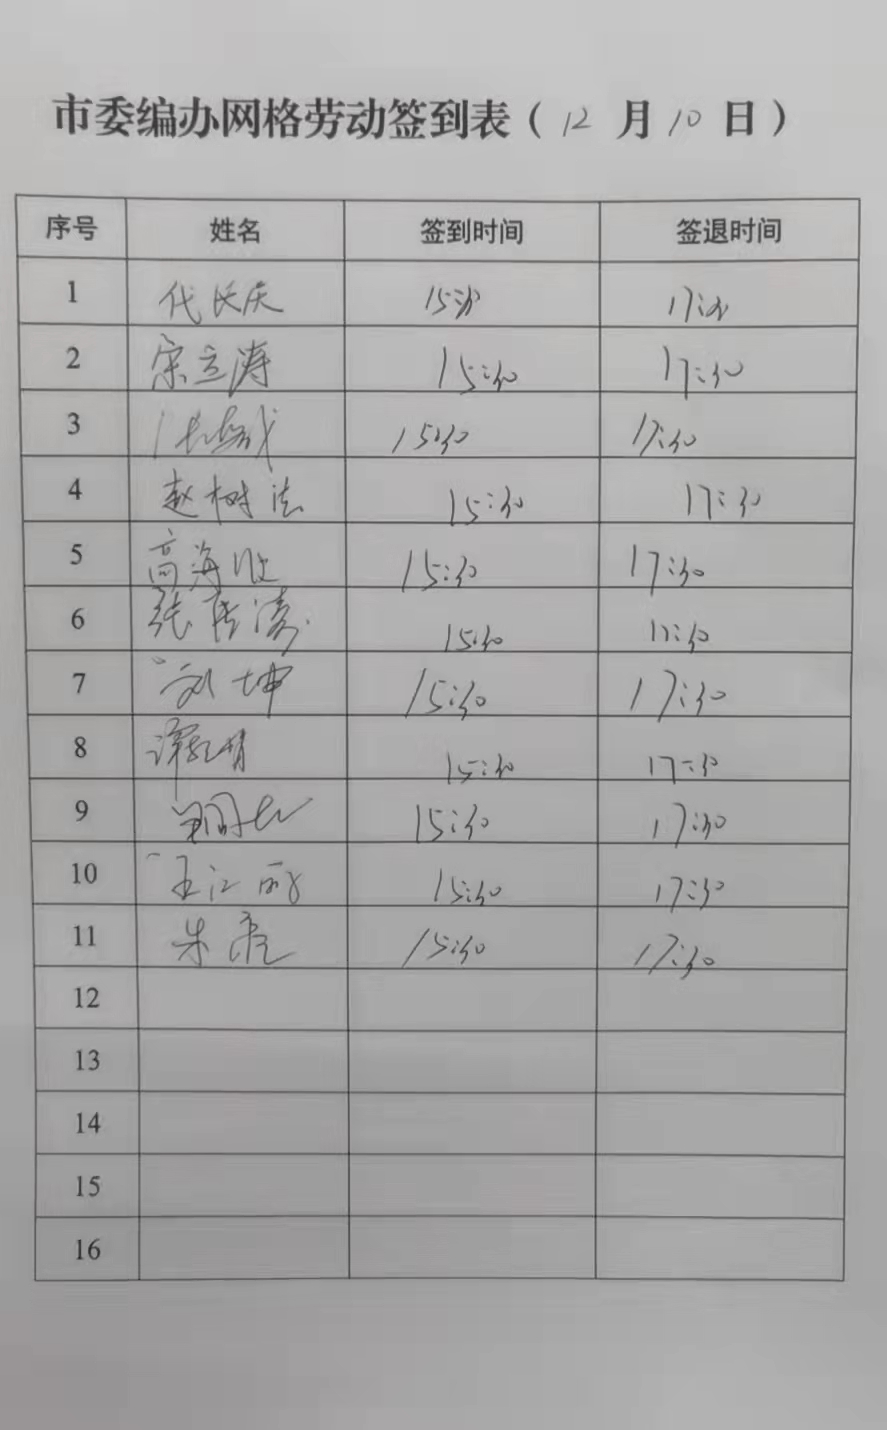 市委编办网格劳动签到表（12月10日）
序号 姓名 签到时间 签退时间
1 代长庆 15:30 17:30
2 宋立涛 15:30 17:30
3 15:30 17:30
4 赵树法 15:30 17:30
5 高海 15:30 17:30
6 张 涛 15:30 17:30
7 刘坤 15:30 17:30
8 谭 15:30 17:30
9 15:30 17:30
10 王江丽 15:30 17:30
11 朱亮 15:30 17:30
12
13
14
15
16